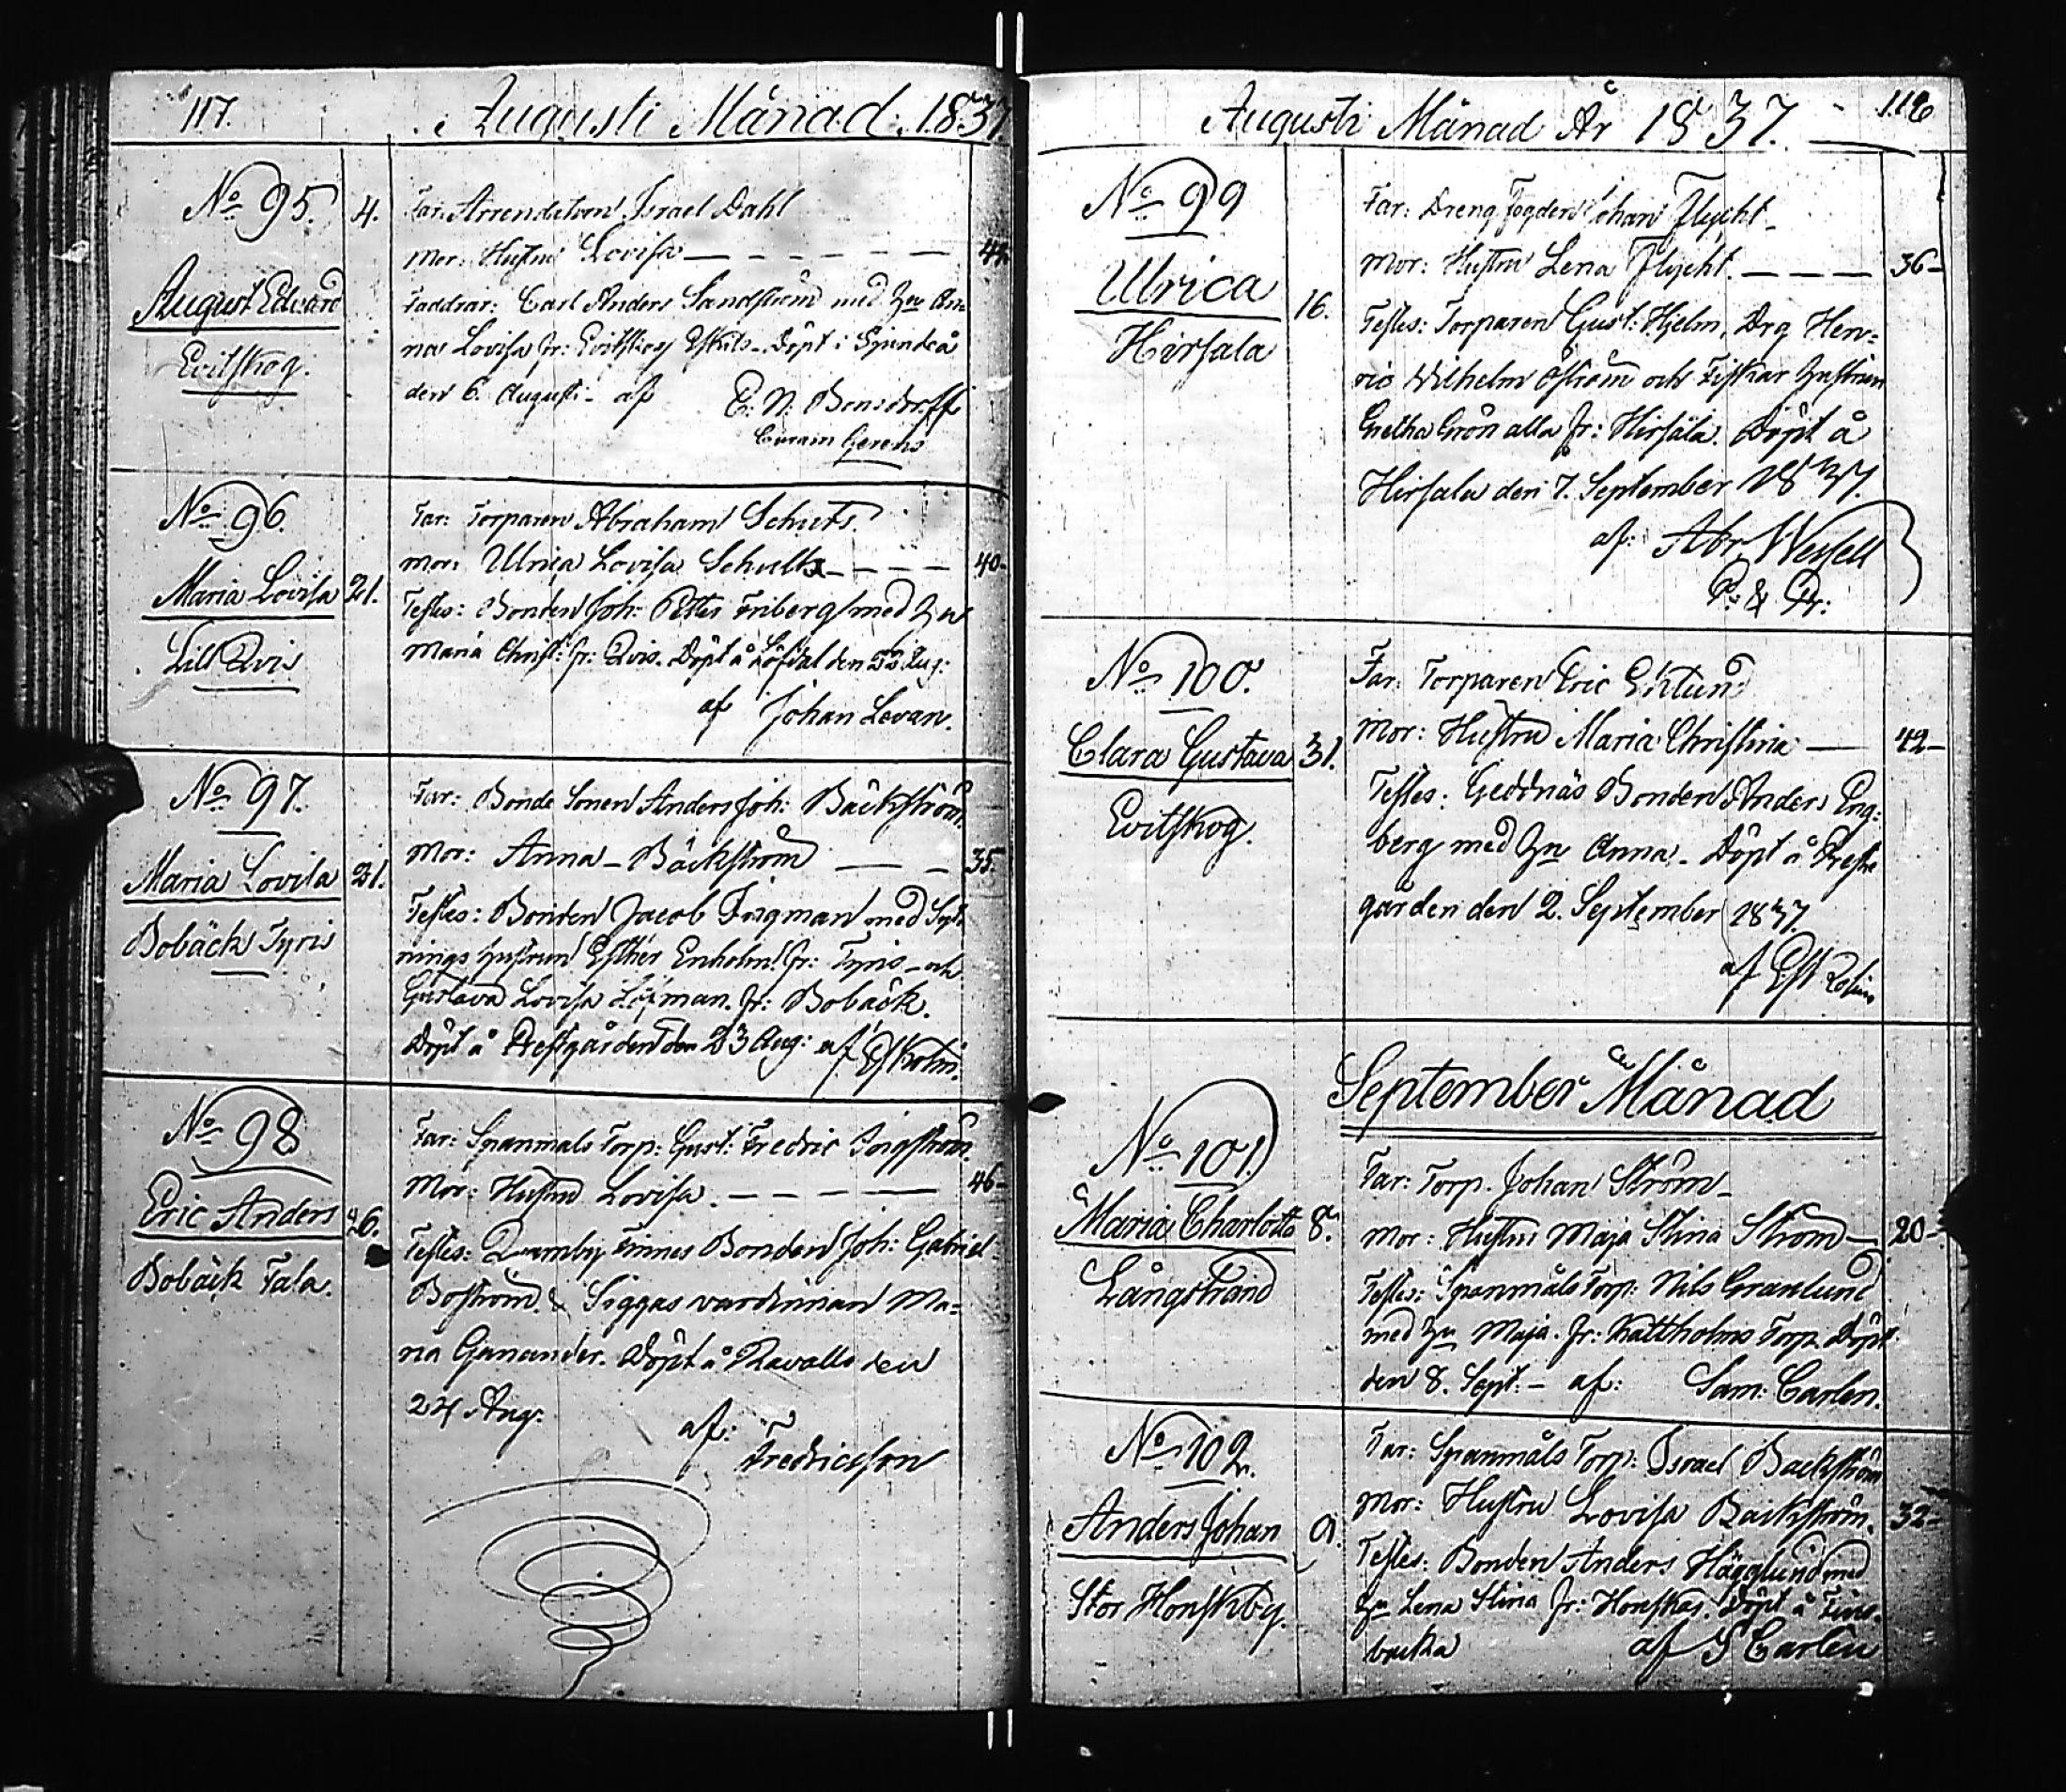 117. Augusti Månad. 1837
No 95. 4. Far: Arrendatorn Israel Dahl
Mor: Hustru Lovisa 44
August Edvard
Faddrar: Carl Anders Sandström med Hu An=
Evitskog.
na Lovisa fr: Evitskog Döpt i
den 6. Augusti af E: N: Bonsdorff
Curam Gerens
No 96. Far: Torparen Abraham Schuts.
Mor: Ulrica Lovisa Schultz 40
Maria Lovisa 21.
Testes: Bonden Joh: Petter Friberg med Hu
Lill Qvis
Maria Christ: fr: Qvis. Döpt å Löfdal den Aug:
af Johan Levan.
No 97. Far: Bonde Sonen Anders Joh: Bäckström
Mor: Anna Bäckström 35.
Maria Lovisa 21.
Testes: Bonden Jacob Fingman med Sytt
Bobäck Tyris
nings hustrun Esther Enholm fr: Tyris och
Gustava Lovisa Löfman. fr: Bobäck.
Döpt å Prestgården den 23 Aug: af
No 98 Far: Spanmåls Torp: Gust: Fredric
Mor: Hustru Lovisa. 46
Eric Anders 26.
Testes: Finnes Bonden Joh: Gabriel
Bobäck Tala.
Boström & Siggas värdinnan Ma=
ria Ganander. Döpt å Ravalls den
24 Aug. af:
Fredricsson
Augusti Månad År 1837. 116
No 99 Far: Dreng Fogden Johan Flycht
Mor: Hustru Lena Flycht. 36
Ulrica 16.
Testes: Torparen Gust: Hjelm, Drg Hen=
Hirsala
ric Wilhelm Öström och Fiskar hustrun
Gretha Grön alla fr: Hirsala. Döpt å
Hirsala den 7. September 1837.
af: Abr. Wessell
P: & Pr:
No 100. Far: Torparen Eric Eklund
Mor: Hustru Maria Christina 42
Clara Gustava 31.
Testes: Geddnäs Bonden Anders Eng=
Evitskog.
berg med Hu Anna. Döpt å Preste
gården den 2. September 1837
af
September Månad
No 101. Far: Torp. Johan Ström
Maria Charlotta 8.
Mor: Hustru Maja Stina Ström 20
Långstrand
Testes: Spanmåls Torp: Nils Granlund
med Hu Maja. fr: Kattholms Torp Döpt
den 8. Sept: af: Sam: Carlen.
No 102. Far: Spanmåls Torp: Israel Backström
Mor: Hustru Lovisa Backström. 32
Anders Johan 9.
Testes: Bonden Anders Hägglund med
Stor Honskby.
Hu Lena Stina fr: Honskas. Döpt å Fins=
backa af S Carlén